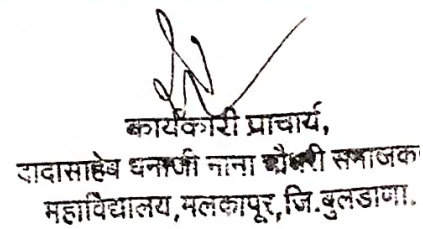 कार्यकारी प्राचार्य,
दादासाहेब धनाजी नाना चौधरी समाजक
महाविद्यालय,मलकापूर,जि.बुलडाणा.